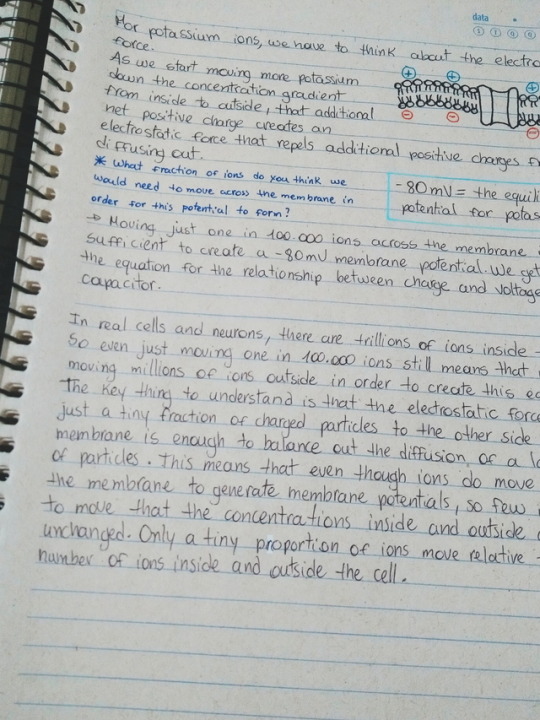 data
For potassium ions, we have to think about the electro
force.
As we start moving more potassium
down the concentration gradient
from inside to outside, that additional
net positive charge creates an
electrostatic force that repels additional positive charges
diffusing out.
* What fraction of ions do you think we
would need to move across the membrane in
order for this potential to form?
-80mV = the equili
potential for potas
→ Moving just one in 100.000 ions across the membrane
sufficient to create a -80mV membrane potential. We get
the equation for the relationship between charge and voltage
capacitor.
In real cells and neurons, there are trillions of ions inside
So even just moving one in 100.000 ions still means that
moving millions of ions outside in order to create this eq
The key thing to understand is that the electrostatic force
just a tiny fraction of charged particles to the other side
membrane is enough to balance out the diffusion of a l
of particles. This means that even though ions do move
the membrane to generate membrane potentials, so few
to move that the concentrations inside and outside
unchanged. Only a tiny proportion of ions move relative
number of ions inside and outside the cell.